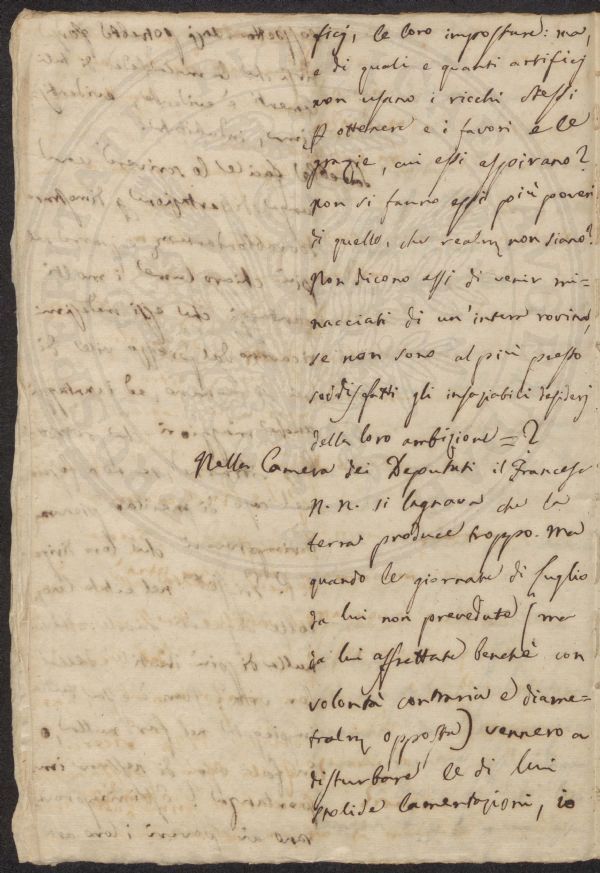 ficj, le loro imposture: ma,
e di quali e quanti artificj
non usano i ricchi stessi
p ottenere e i favori e le
grazie, cui essi aspirano?
non si fanno essi più poveri
di quello, che realm non siano?
Non dicono essi di venir mi=
nacciati di un'intera rovina,
se non sono al più presto
soddisfatti gli insaziabili desiderj
della loro ambizione = ?
Nella Camera dei Deputati il Francese
N. N. si lagnava che la
terra produce troppo. ma
quando le giornate di luglio
da lui non prevedute (ma
da lui affrettate benchè con
volontà contraria e diame=
tralm opposta) vennero a
disturbare le di lui
stolide lamentazioni, io